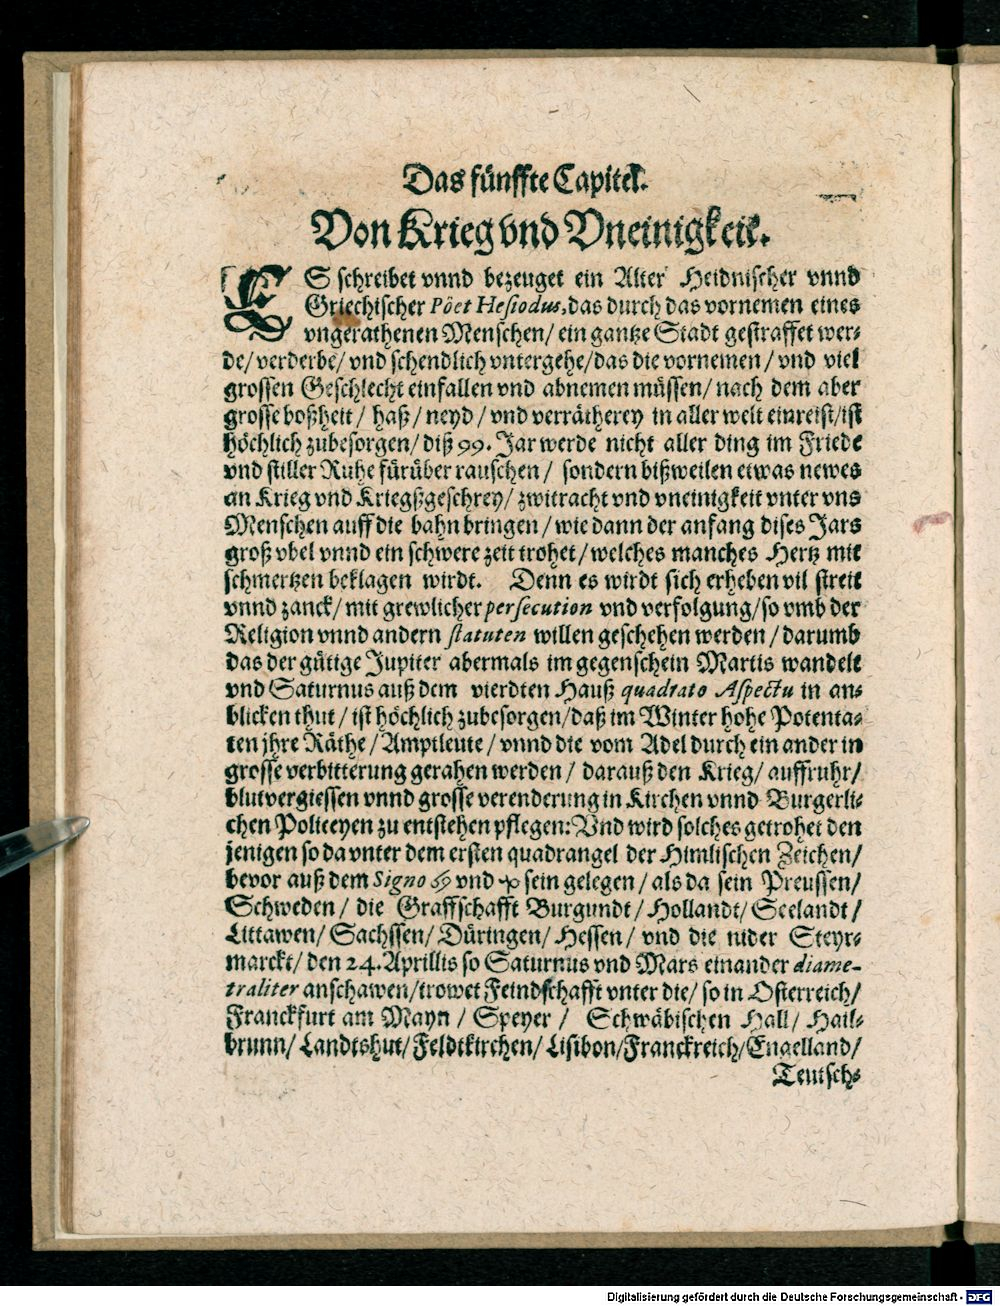 Das fünffte Capitel.
Von Krieg vnd Vneinigkeit.
ES schreibet vnnd bezeuget ein Alter Heidnischer vnnd
Griechischer Pôet Hesiodus, das durch das vornemen eines
vngerathenen Menschen/ ein gantze Stadt gestraffet wer-
de/ verderbe/ vnd schendlich vntergehe/ das die vornemen/ vnd viel
grossen Geschlecht einfallen vnd abnemen müssen/ nach dem aber
grosse boßheit/ haß/ neyd/ vnd verrätherey in aller welt einreist/ ist
höchlich zubesorgen/ diß 99. Jar werde nicht aller ding im Friede
vnd stiller Ruhe fürüber rauschen/ sondern bißweilen etwas newes
an Krieg vnd Kriegßgeschrey/ zwitracht vnd vneinigkeit vnter vns
Menschen auff die bahn bringen/ wie dann der anfang dises Jars
groß vbel vnnd ein schwere zeit trohet/ welches manches Hertz mit
schmertzen beklagen wirdt. Denn es wirdt sich erheben vil streit
vnnd zanck/ mit grewlicher persecution vnd verfolgung/ so vmb der
Religion vnnd andern statuten willen geschehen werden/ darumb
das der gütige Jupiter abermals im gegenschein Martis wandelt
vnd Saturnus auß dem vierdten Hauß quadrato Aspectu in an-
blicken thut/ ist höchlich zubesorgen/ daß im Winter hohe Potenta-
ten jhre Räthe/ Amptleute/ vnnd die vom Adel durch ein ander in
grosse verbitterung gerahen werden/ darauß den Krieg/ auffruhr/
blutvergiessen vnnd grosse verenderung in Kirchen vnnd Burgerli-
chen Policeyen zu entstehen pflegen: Vnd wird solches getrohet den
jenigen so da vnter dem ersten quadrangel der Himlischen Zeichen/
bevor auß dem Signo ♋ vnd ♑ sein gelegen/ als da sein Preussen/
Schweden/ die Graffschafft Burgundt/ Hollandt/ Seelandt/
Littawen/ Sachssen/ Düringen/ Hessen/ vnd die nider Steyr-
marckt/ den 24. Aprillis so Saturnus vnd Mars einander diame-
traliter anschawen/ trowet Feindschafft vnter die/ so in Osterreich/
Franckfurt am Mayn/ Speyer/ Schwäbischen Hall/ Hail-
brunn/ Landtshut/ Feldtkirchen/ Lisibon/ Franckreich/ Engelland/
Teutsch-
Digitalisierung gefördert durch die Deutsche Forschungsgemeinschaft - DFG